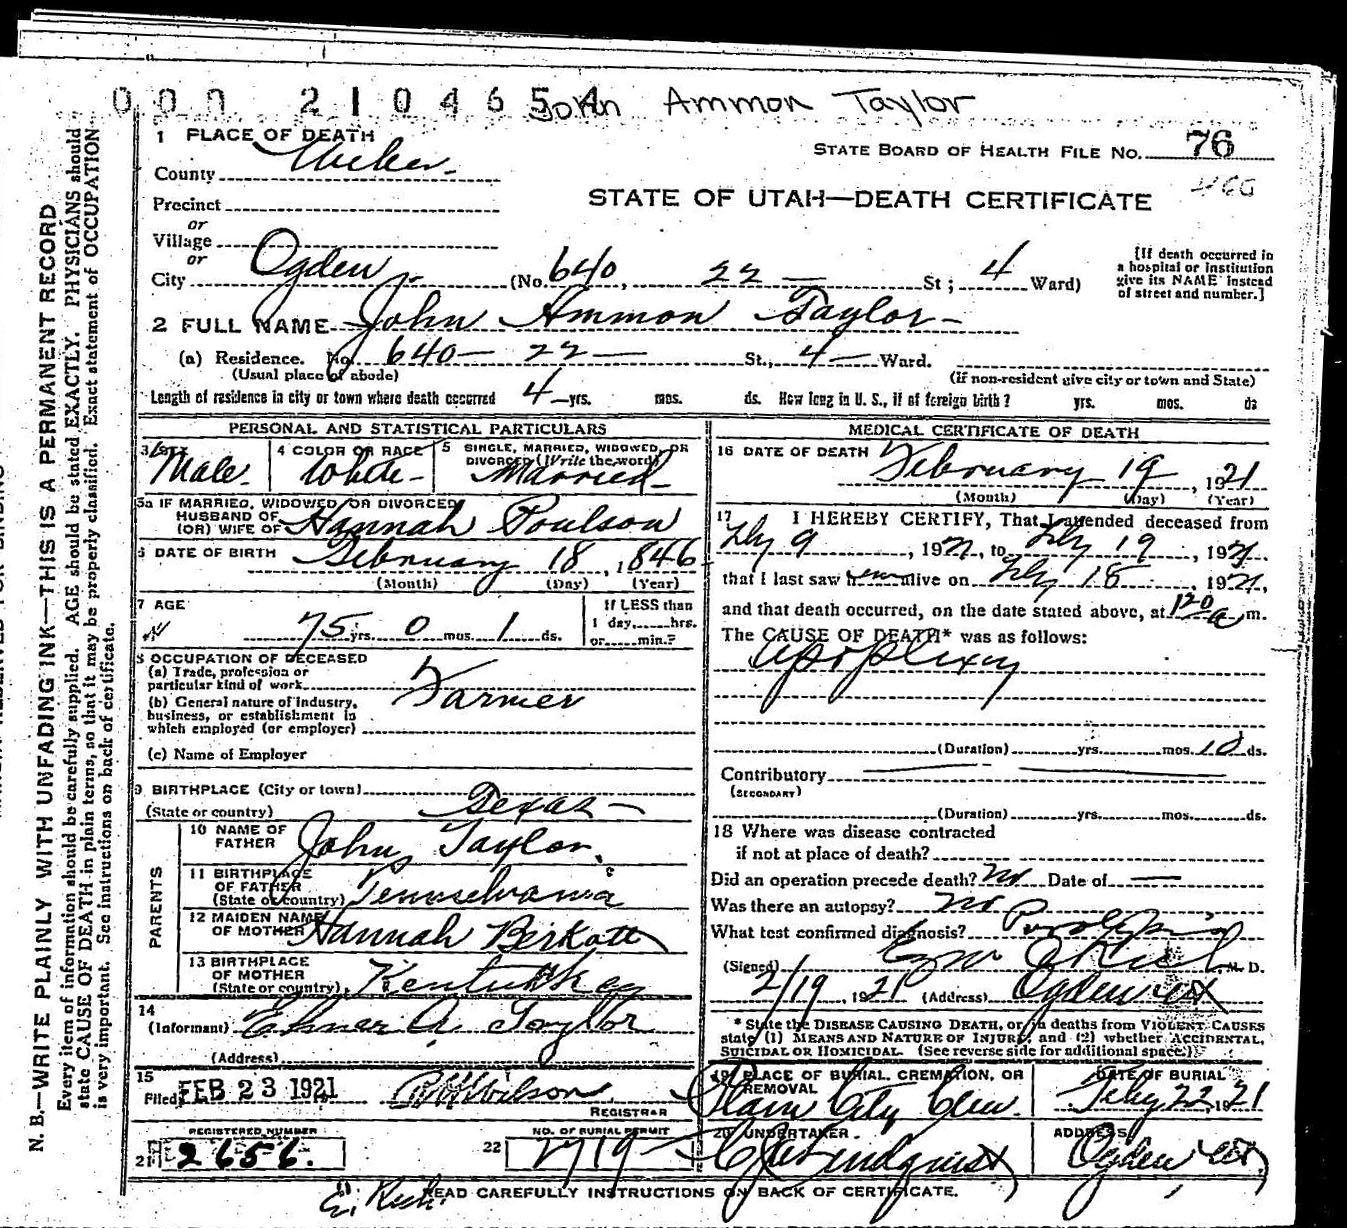 000 2104654 John Ammon Taylor
1 PLACE OF DEATH
County Weber
STATE BOARD OF HEALTH FILE NO. 76
466
Precinct
STATE OF UTAH—DEATH CERTIFICATE
or
Village
or
City Ogden (No. 640, 22 — St; 4 Ward)
[If death occurred in
a hospital or institution
give its NAME instead
of street and number.]
2 FULL NAME John Ammon Taylor
(a) Residence. No. 640— 22— St., 4— Ward.
(Usual place of abode) (If non-resident give city or town and State)
Length of residence in city or town where death occurred 4—yrs. mos. ds. How long in U. S., if of foreign birth? yrs. mos. ds
PERSONAL AND STATISTICAL PARTICULARS
3 SEX Male
4 COLOR OR RACE White
5 SINGLE, MARRIED, WIDOWED, OR
DIVORCED (Write the word) Married
5a IF MARRIED, WIDOWED OR DIVORCED
HUSBAND OF
(OR) WIFE OF Hannah Poulson
6 DATE OF BIRTH February 18, 1846
(Month) (Day) (Year)
7 AGE
75 yrs. 0 mos. 1 ds.
If LESS than
1 day,......hrs.
or......min.?
8 OCCUPATION OF DECEASED
(a) Trade, profession or
particular kind of work Farmer
(b) General nature of industry,
business, or establishment in
which employed (or employer)
(c) Name of Employer
9 BIRTHPLACE (City or town)
(State or country) Texas—
PARENTS
10 NAME OF
FATHER John Taylor
11 BIRTHPLACE
OF FATHER
(State or country) Pennselvania
12 MAIDEN NAME
OF MOTHER Hannah
13 BIRTHPLACE
OF MOTHER
(State or country) Kentuckey
14
(Informant) Elmer A. Taylor
(Address)
15
Filed FEB 23 1921 Wilson
REGISTRAR
REGISTERED NUMBER
21 2656.
NO. OF BURIAL PERMIT
22 2719
MEDICAL CERTIFICATE OF DEATH
16 DATE OF DEATH February 19, 1921
(Month) (Day) (Year)
17 I HEREBY CERTIFY, That I attended deceased from
Feby 9, 1921, to Feby 19, 1921
that I last saw him alive on Feby 18, 1921,
and that death occurred, on the date stated above, at 120 a m.
The CAUSE OF DEATH* was as follows:
Apoplexy
(Duration) yrs. mos. 10 ds.
Contributory
(SECONDARY)
(Duration) yrs. mos. ds.
18 Where was disease contracted
if not at place of death?
Did an operation precede death? No Date of —
Was there an autopsy? No
What test confirmed diagnosis?
(Signed) M. D.
2/19, 1921 (Address) Ogden Ut
* State the DISEASE CAUSING DEATH, or, in deaths from VIOLENT CAUSES
state (1) MEANS AND NATURE OF INJURY, and (2) whether ACCIDENTAL,
SUICIDAL OR HOMICIDAL. (See reverse side for additional space.)
19 PLACE OF BURIAL, CREMATION, OR
REMOVAL Plain City Cem.
DATE OF BURIAL
Feby 22, 1921
20 UNDERTAKER Lindquist
ADDRESS
Ogden Ut.
READ CAREFULLY INSTRUCTIONS ON BACK OF CERTIFICATE.
N. B.—WRITE PLAINLY WITH UNFADING INK—THIS IS A PERMANENT RECORD
Every item of information should be carefully supplied. AGE should be stated EXACTLY. PHYSICIANS should
state CAUSE OF DEATH in plain terms, so that it may be properly classified. Exact statement of OCCUPATION
is very important. See instructions on back of certificate.